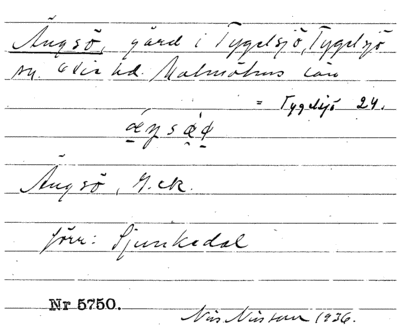 Ängsö, gård i Tygelsjö, Tygelsjö
sn. Oxie hd. Malmöhus län
= Tygelsjö 24.
Ängsö, G.ek.
förr: Sjunkedal
Nr 5750.
Nils Nilsson 1936.